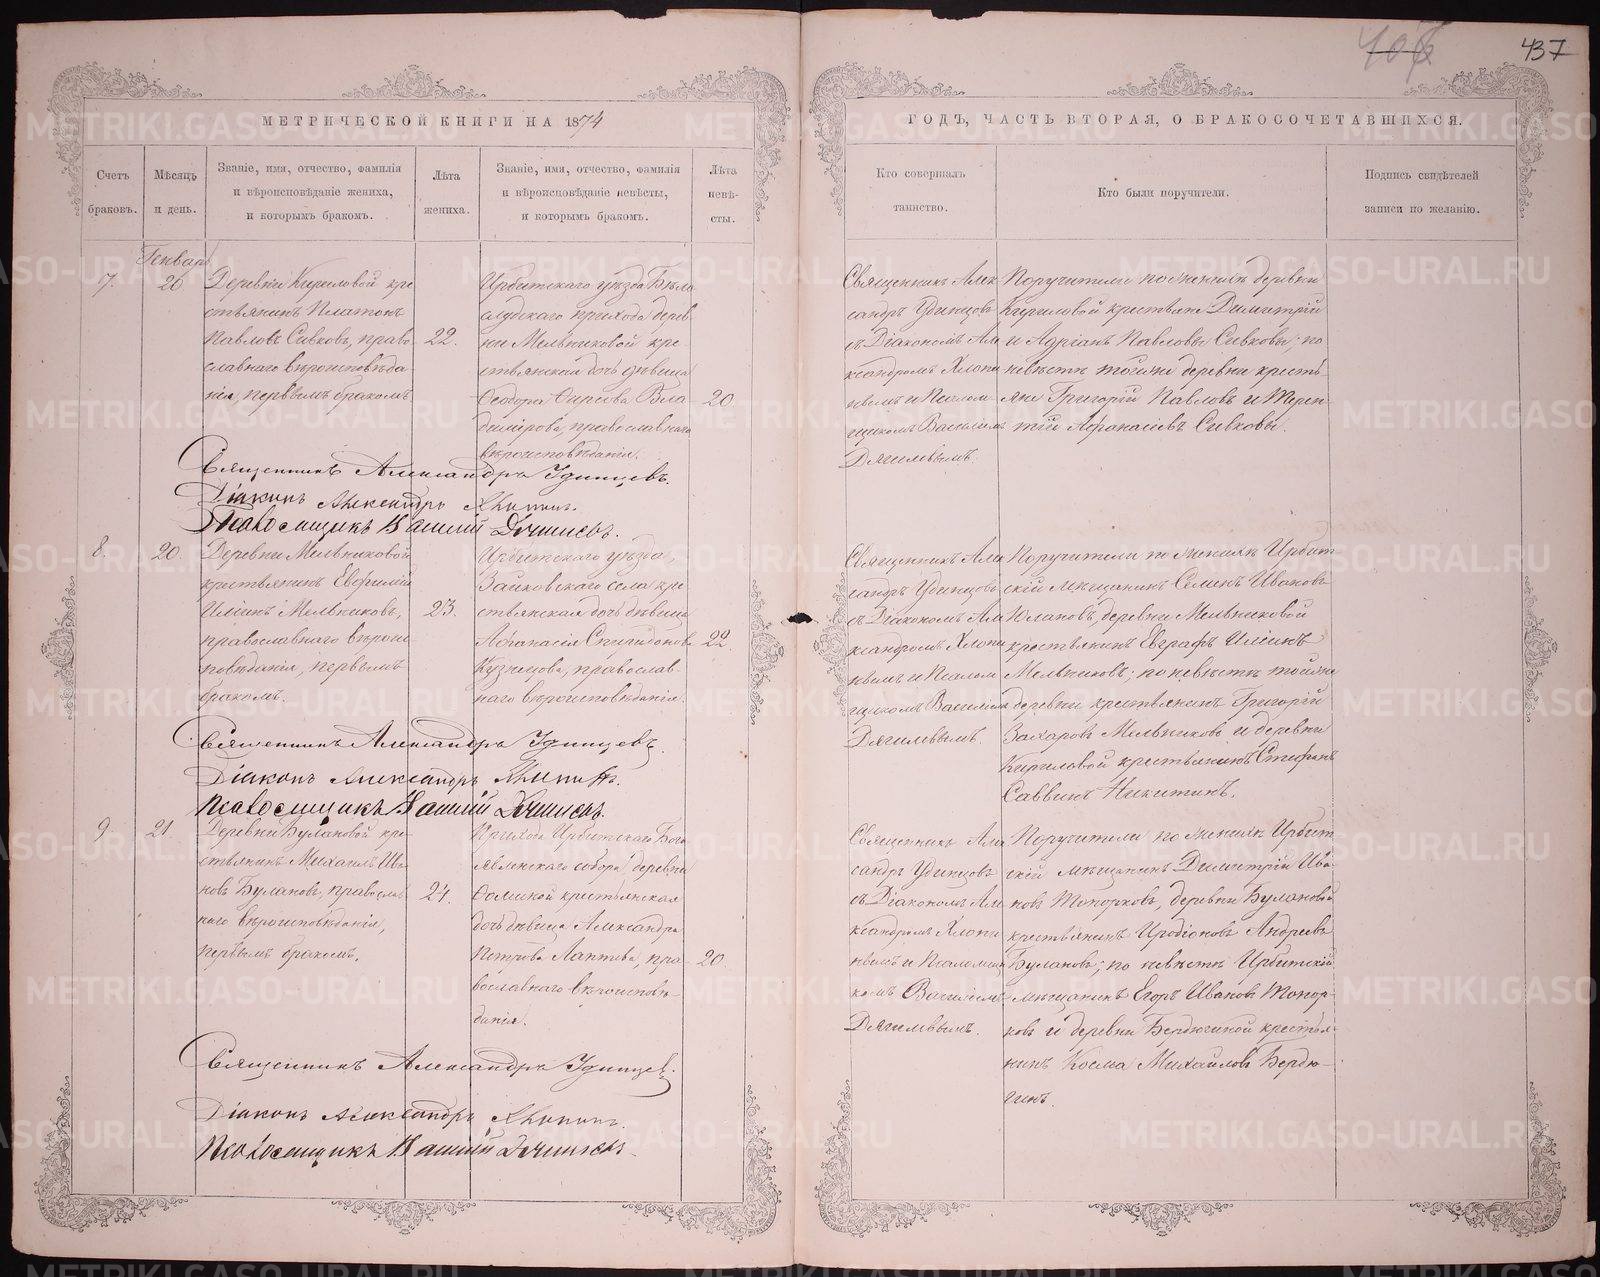 406
437
МЕТРИЧЕСКОЙ КНИГИ НА 1874
ГОДЪ, ЧАСТЬ ВТОРАЯ, О БРАКОСОЧЕТАВШИХСЯ.
Счетъ
браковъ.
Мѣсяцъ
и день.
Званіе, имя, отчество, фамилія
и вѣроисповѣданіе жениха,
и которымъ бракомъ.
Лѣта
жениха.
Званіе, имя, отчество, фамилія
и вѣроисповѣданіе невѣсты,
и которымъ бракомъ.
Лѣта
невѣ-
сты.
Кто совершалъ
таинство.
Кто были поручители.
Подпись свидѣтелей
записи по желанію.
Генварь
7.
20
Деревни Кириловой кре
стьянинъ Платонъ
Павловъ Сивковъ, право-
славнаго вѣроисповѣда
нія, первымъ бракомъ
22.
Ирбитскаго уѣзда Бѣло
слудскаго прихода дерев
ни Мельниковой кре-
стьянская дочь дѣвица
Ѳеодора Сирсова Вла
димірова, православнаго
вѣроисповѣданія.
20
Священникъ Алек
сандръ Удинцовъ
съ Діакономъ Але
ксандромъ Хлопи
нымъ и Псалом
щикомъ Василіемъ
Дягилевымъ.
Поручители по женихѣ деревни
Кириловой крестьяне Димитрій
и Адріанъ Павловы Сивковы; по
невѣстѣ тойже деревни кресть
яне Григорій Павловъ и Терен
тій Аѳанасіевъ Сивковы.
Священникъ Александръ Удинцевъ.
Діаконъ Александръ Хлопинъ.
Псаломщикъ Василій Дягилевъ.
8.
20.
Деревни Мельниковой
крестьянинъ Евфимій
Иліинъ Мельниковъ,
православнаго вѣроис
повѣданія, первымъ
бракомъ.
23.
Ирбитскаго уѣзда
Зайковскаго села кре
стьянская дочь дѣвица
Аѳанасія Спиридонова
Кузнецова, православ-
наго вѣроисповѣданія.
22.
Священникъ Але
ксандръ Удинцовъ
съ Діакономъ Але
ксандромъ Хлопи
нымъ и Псалом
щикомъ Василіемъ
Дягилевымъ.
Поручители по женихѣ Ирбит
скій мѣщанинъ Семенъ Ивановъ
Юлановъ, деревни Мельниковой
крестьянинъ Евграфъ Иліинъ
Мельниковъ; по невѣстѣ тойже
деревни крестьянинъ Григорій
Захаровъ Мельниковъ и деревни
Кириловой крестьянинъ Стефанъ
Саввинъ Никитинъ.
Священникъ Александръ Удинцевъ.
Діаконъ Александръ Хлопинъ.
Псаломщикъ Василій Дягилевъ.
9.
21
Деревни Булановой кре-
стьянинъ Михаилъ Ива
новъ Булановъ, православ
наго вѣроисповѣданія,
первымъ бракомъ.
24.
Прихода Ирбитскаго Бого
явленскаго собора, деревни
Ѳоминой крестьянская
дочь дѣвица Александра
Петрова Лаптева, пра-
вославнаго вѣроисповѣ-
данія.
20
Священникъ Але
ксандръ Удинцовъ
съ Діакономъ Але
ксандромъ Хлопи
нымъ и Псаломщи
комъ Василіемъ
Дягилевымъ.
Поручители по женихѣ Ирбит
скій мѣщанинъ Димитрій Ива
новъ Топорковъ, деревни Булановой
крестьянинъ Иродіоновъ Андреевъ
Булановъ; по невѣстѣ Ирбитскій
мѣщанинъ Егоръ Ивановъ Топор-
ковъ и деревни Бердюгиной крестья-
нинъ Косма Михайловъ Бердю-
гинъ.
Священникъ Александръ Удинцевъ.
Діаконъ Александръ Хлопинъ.
Псаломщикъ Василій Дягилевъ.
METRIKI.GASO-URAL.RU